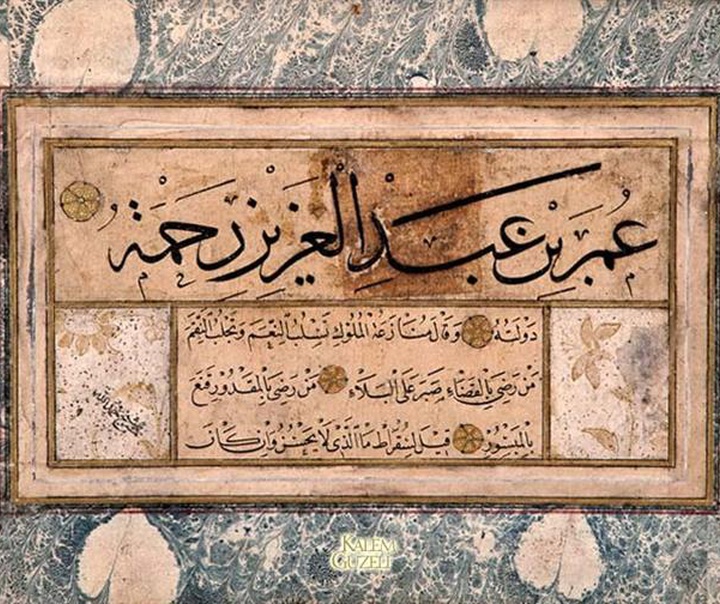 عُمَر بْن عَبْدِ الْعَزِيزِ رَحْمَة
دَوْلَتُهُ وَقَالَ مُنَازَعَةُ الْمُلُوكِ تَسْلُبُ النِّعَمَ وَتَجْلُبُ النِّقَمَ
مَنْ رَضِيَ بِالْقَضَاءِ صَبَرَ عَلَى الْبَلَاءِ مَنْ رَضِيَ بِالْمَقْدُورِ قَنَعَ
بِالْمَيْسُورِ قِيلَ لِسُقْرَاط مَا الَّذِي لَا يَحْسُنُ وَإِنْ كَانَ
KALEM
GÜZELİ